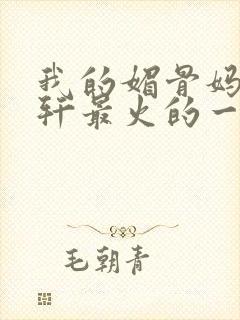 我的媚骨妈
轩最火的一
毛朝青